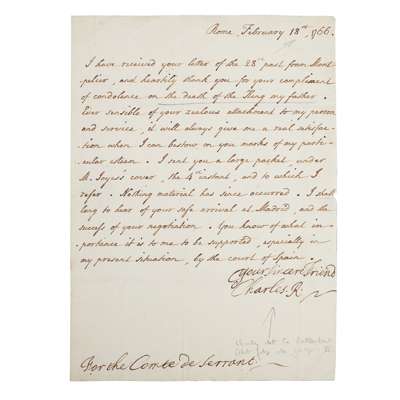 Rome February 18th, 1766.
I have received your letter of the 28th past, from Mont
pelier, and heartily thank you for your compliment
of condolence on the death of the King my father.
Ever sensible of your zealous attachment to my person
and service, it will always give me a real satisfac-
tion when I can bestow on you marks of my partic-
ular esteem. I sent you a large packet, under
M. Joyes's cover the 4th instant, and to which I
refer. Nothing material has since occurred. I shall
long to hear of your safe arrival at Madrid, and the
success of your negotiation. You know of what im-
portance it is to me to be supported, especially in
my present situation, by the court of Spain.
Your sincere friend
Charles R.
For the Comte de Serrant.